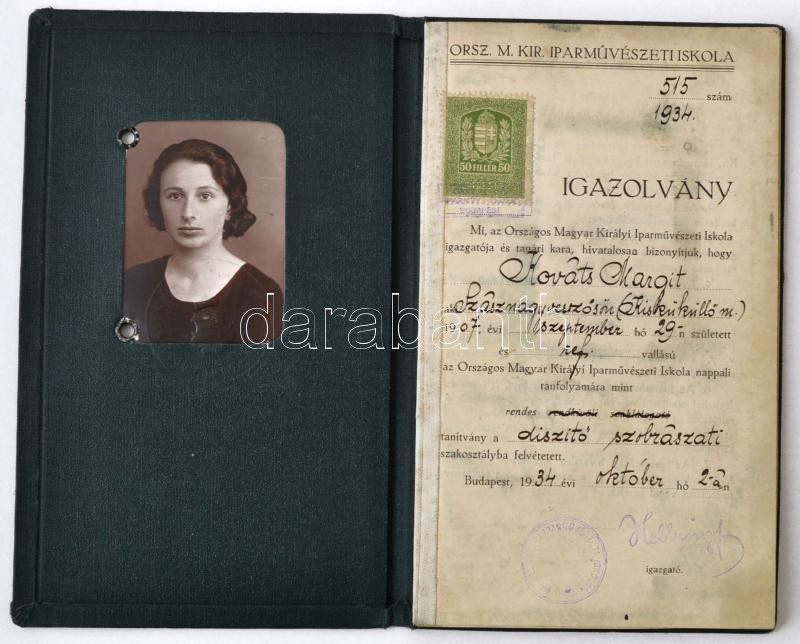 ORSZ. M. KIR. IPARMŰVÉSZETI ISKOLA
515 szám
1934.
50 FILLÉR 50
BUDAPEST
IGAZOLVÁNY
Mi, az Országos Magyar Királyi Iparművészeti Iskola
igazgatója és tanári kara, hivatalosan bizonyítjuk, hogy
Kováts Margit
Szásznagyveszősön (Kisküküllő m.)
1907. évi szeptember hó 29-n született
és ref. vallású
az Országos Magyar Királyi Iparművészeti Iskola nappali
tanfolyamára mint
rendes rendkívüli szaklátogató
tanítvány a díszítő szobrászati
szakosztályba felvétetett.
Budapest, 1934 évi október hó 2-án
igazgató.
darabanth